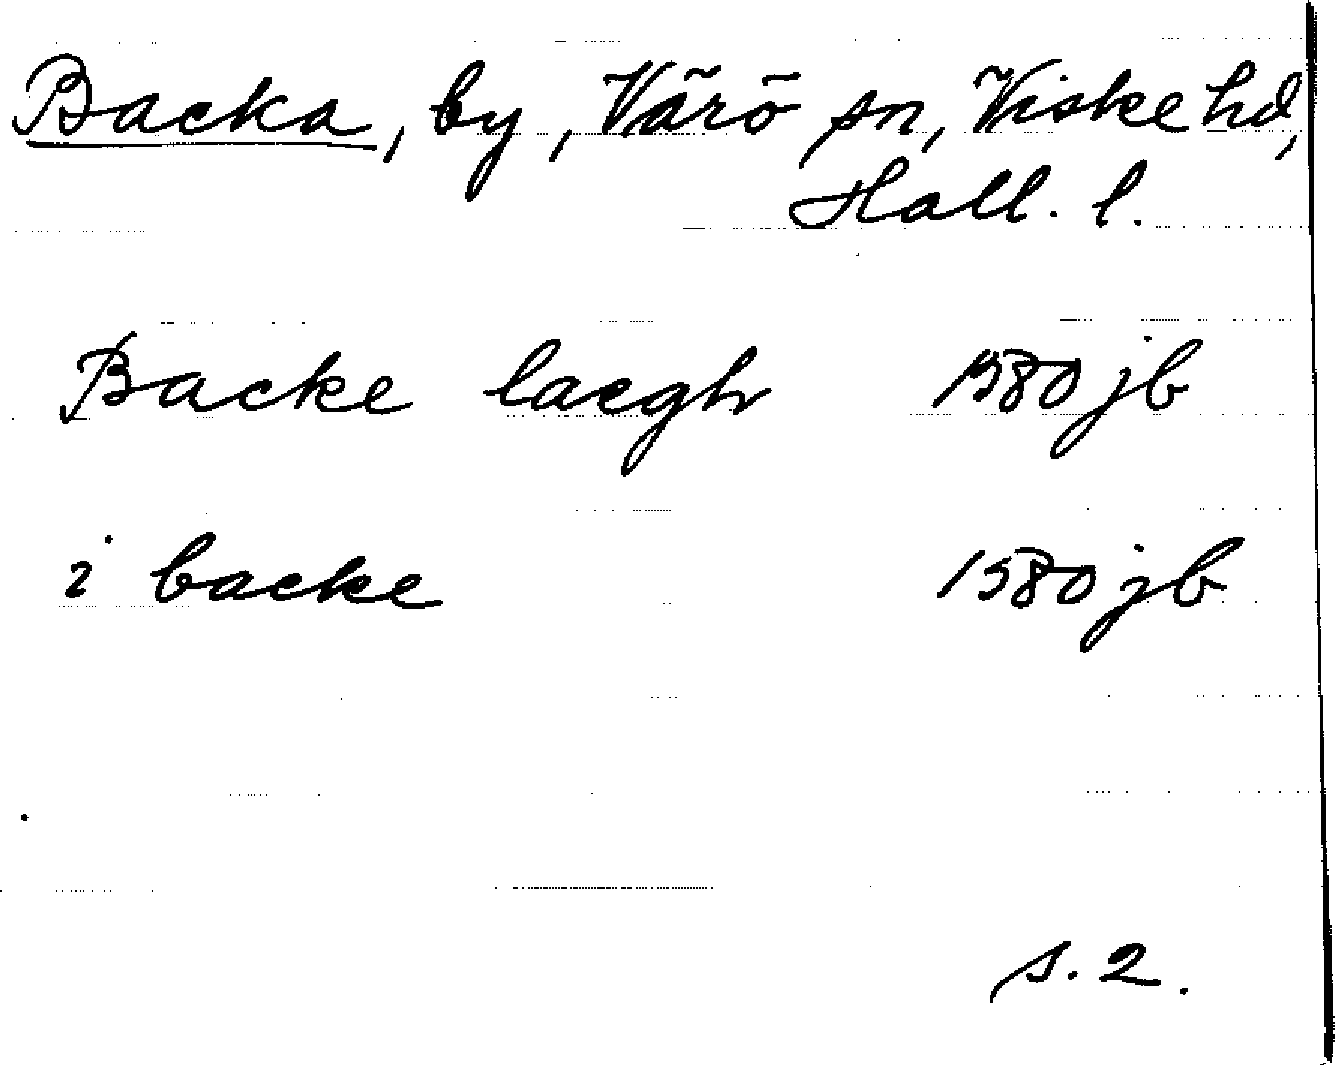 Backa, by, Värö sn, Viske hd,
Hall. l.
Backe laegh 1580 jb
i backe 1580 jb
s. 2.